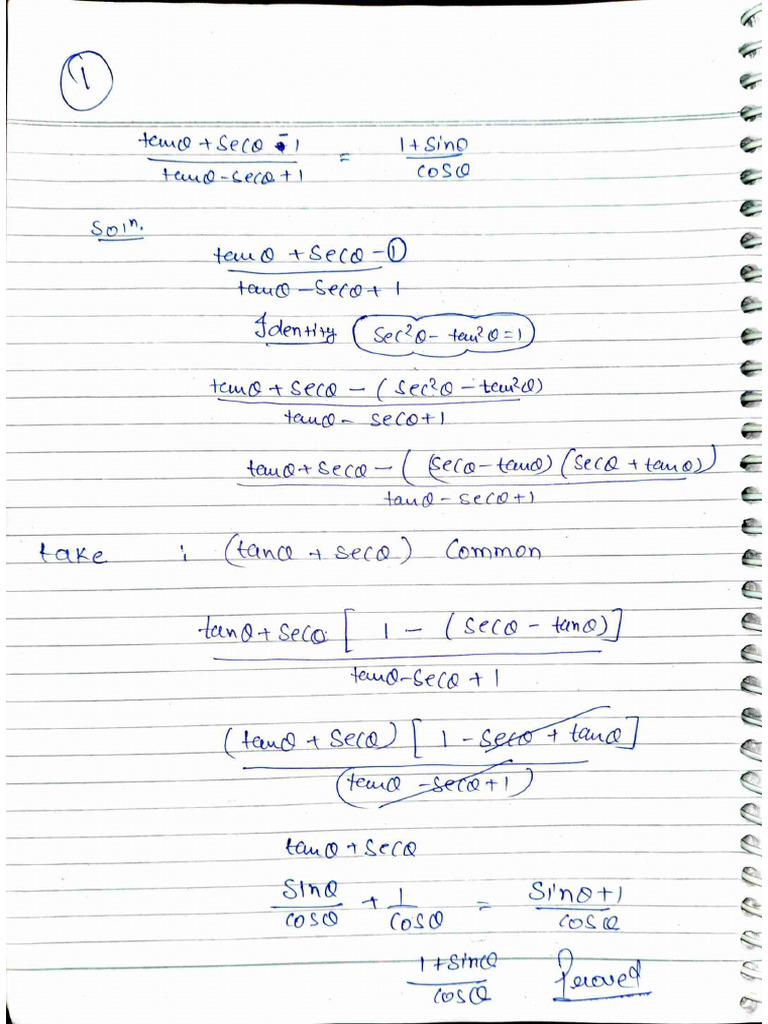 1
(tanθ + secθ - 1)/(tanθ - secθ + 1) = (1 + sinθ)/cosθ
Soln.
(tanθ + secθ - 1)/(tanθ - secθ + 1)
Identity (sec²θ - tan²θ = 1)
(tanθ + secθ - (sec²θ - tan²θ))/(tanθ - secθ + 1)
(tanθ + secθ - ((secθ - tanθ)(secθ + tanθ)))/(tanθ - secθ + 1)
take : (tanθ + secθ) Common
(tanθ + secθ [1 - (secθ - tanθ)])/(tanθ - secθ + 1)
((tanθ + secθ)[1 - secθ + tanθ])/((tanθ - secθ + 1))
tanθ + secθ
sinθ/cosθ + 1/cosθ = (sinθ + 1)/cosθ
(1 + sinθ)/cosθ Proved